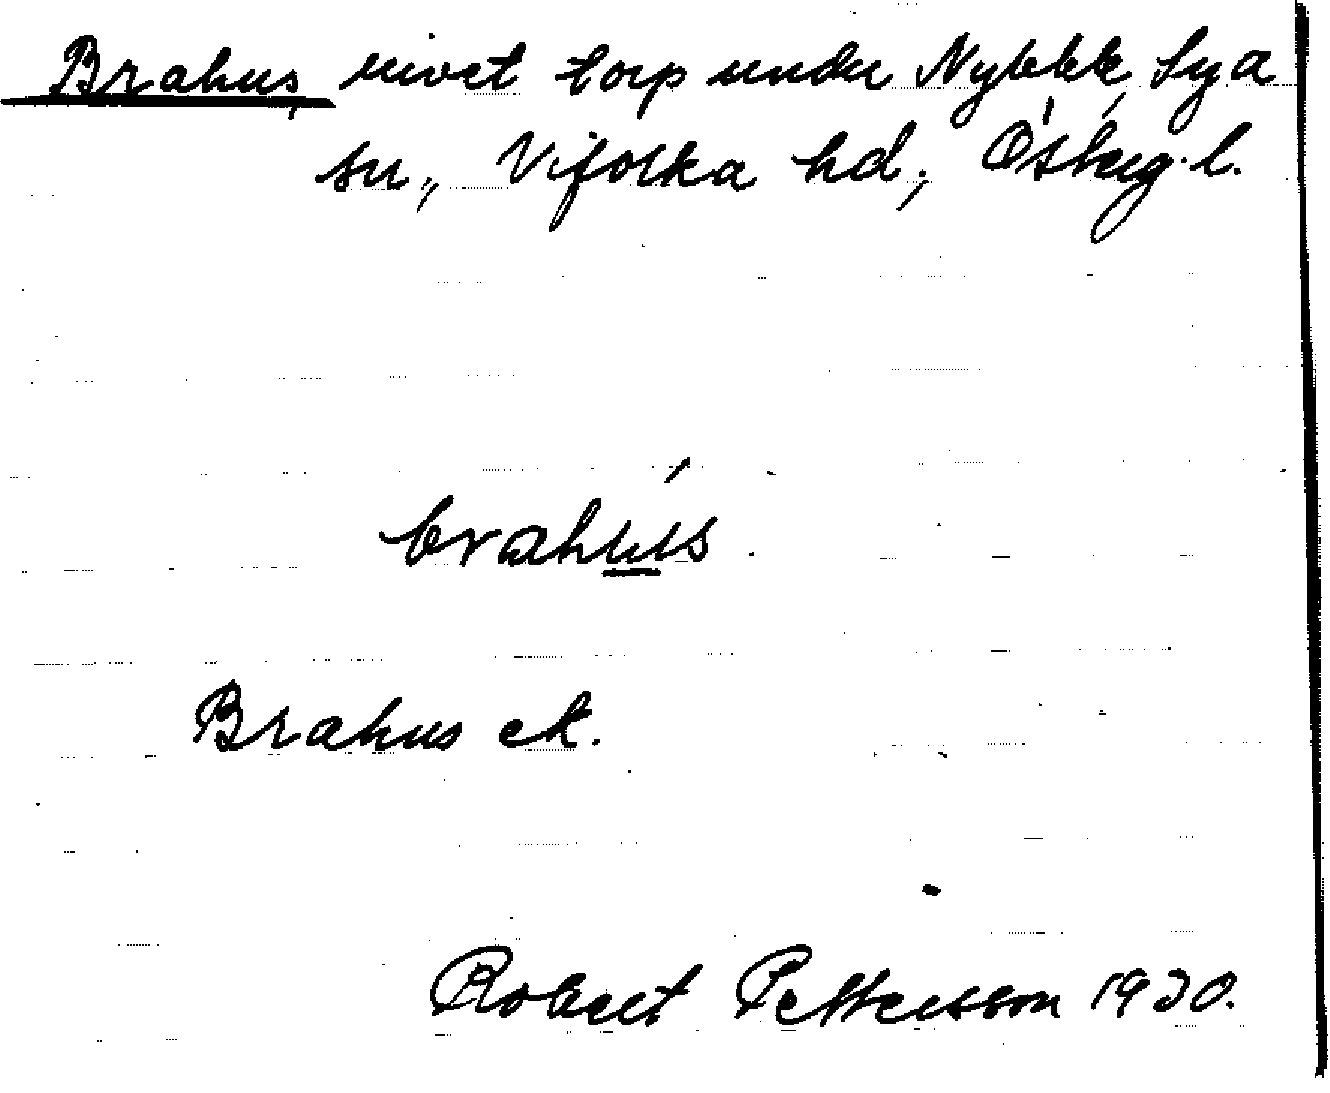 Brahus, rivet torp under Nybble, Sya
sn., Vifolka hd; Östkg. l.
brahu̲s
Brahus ek.
Robert Pettersson 1930.